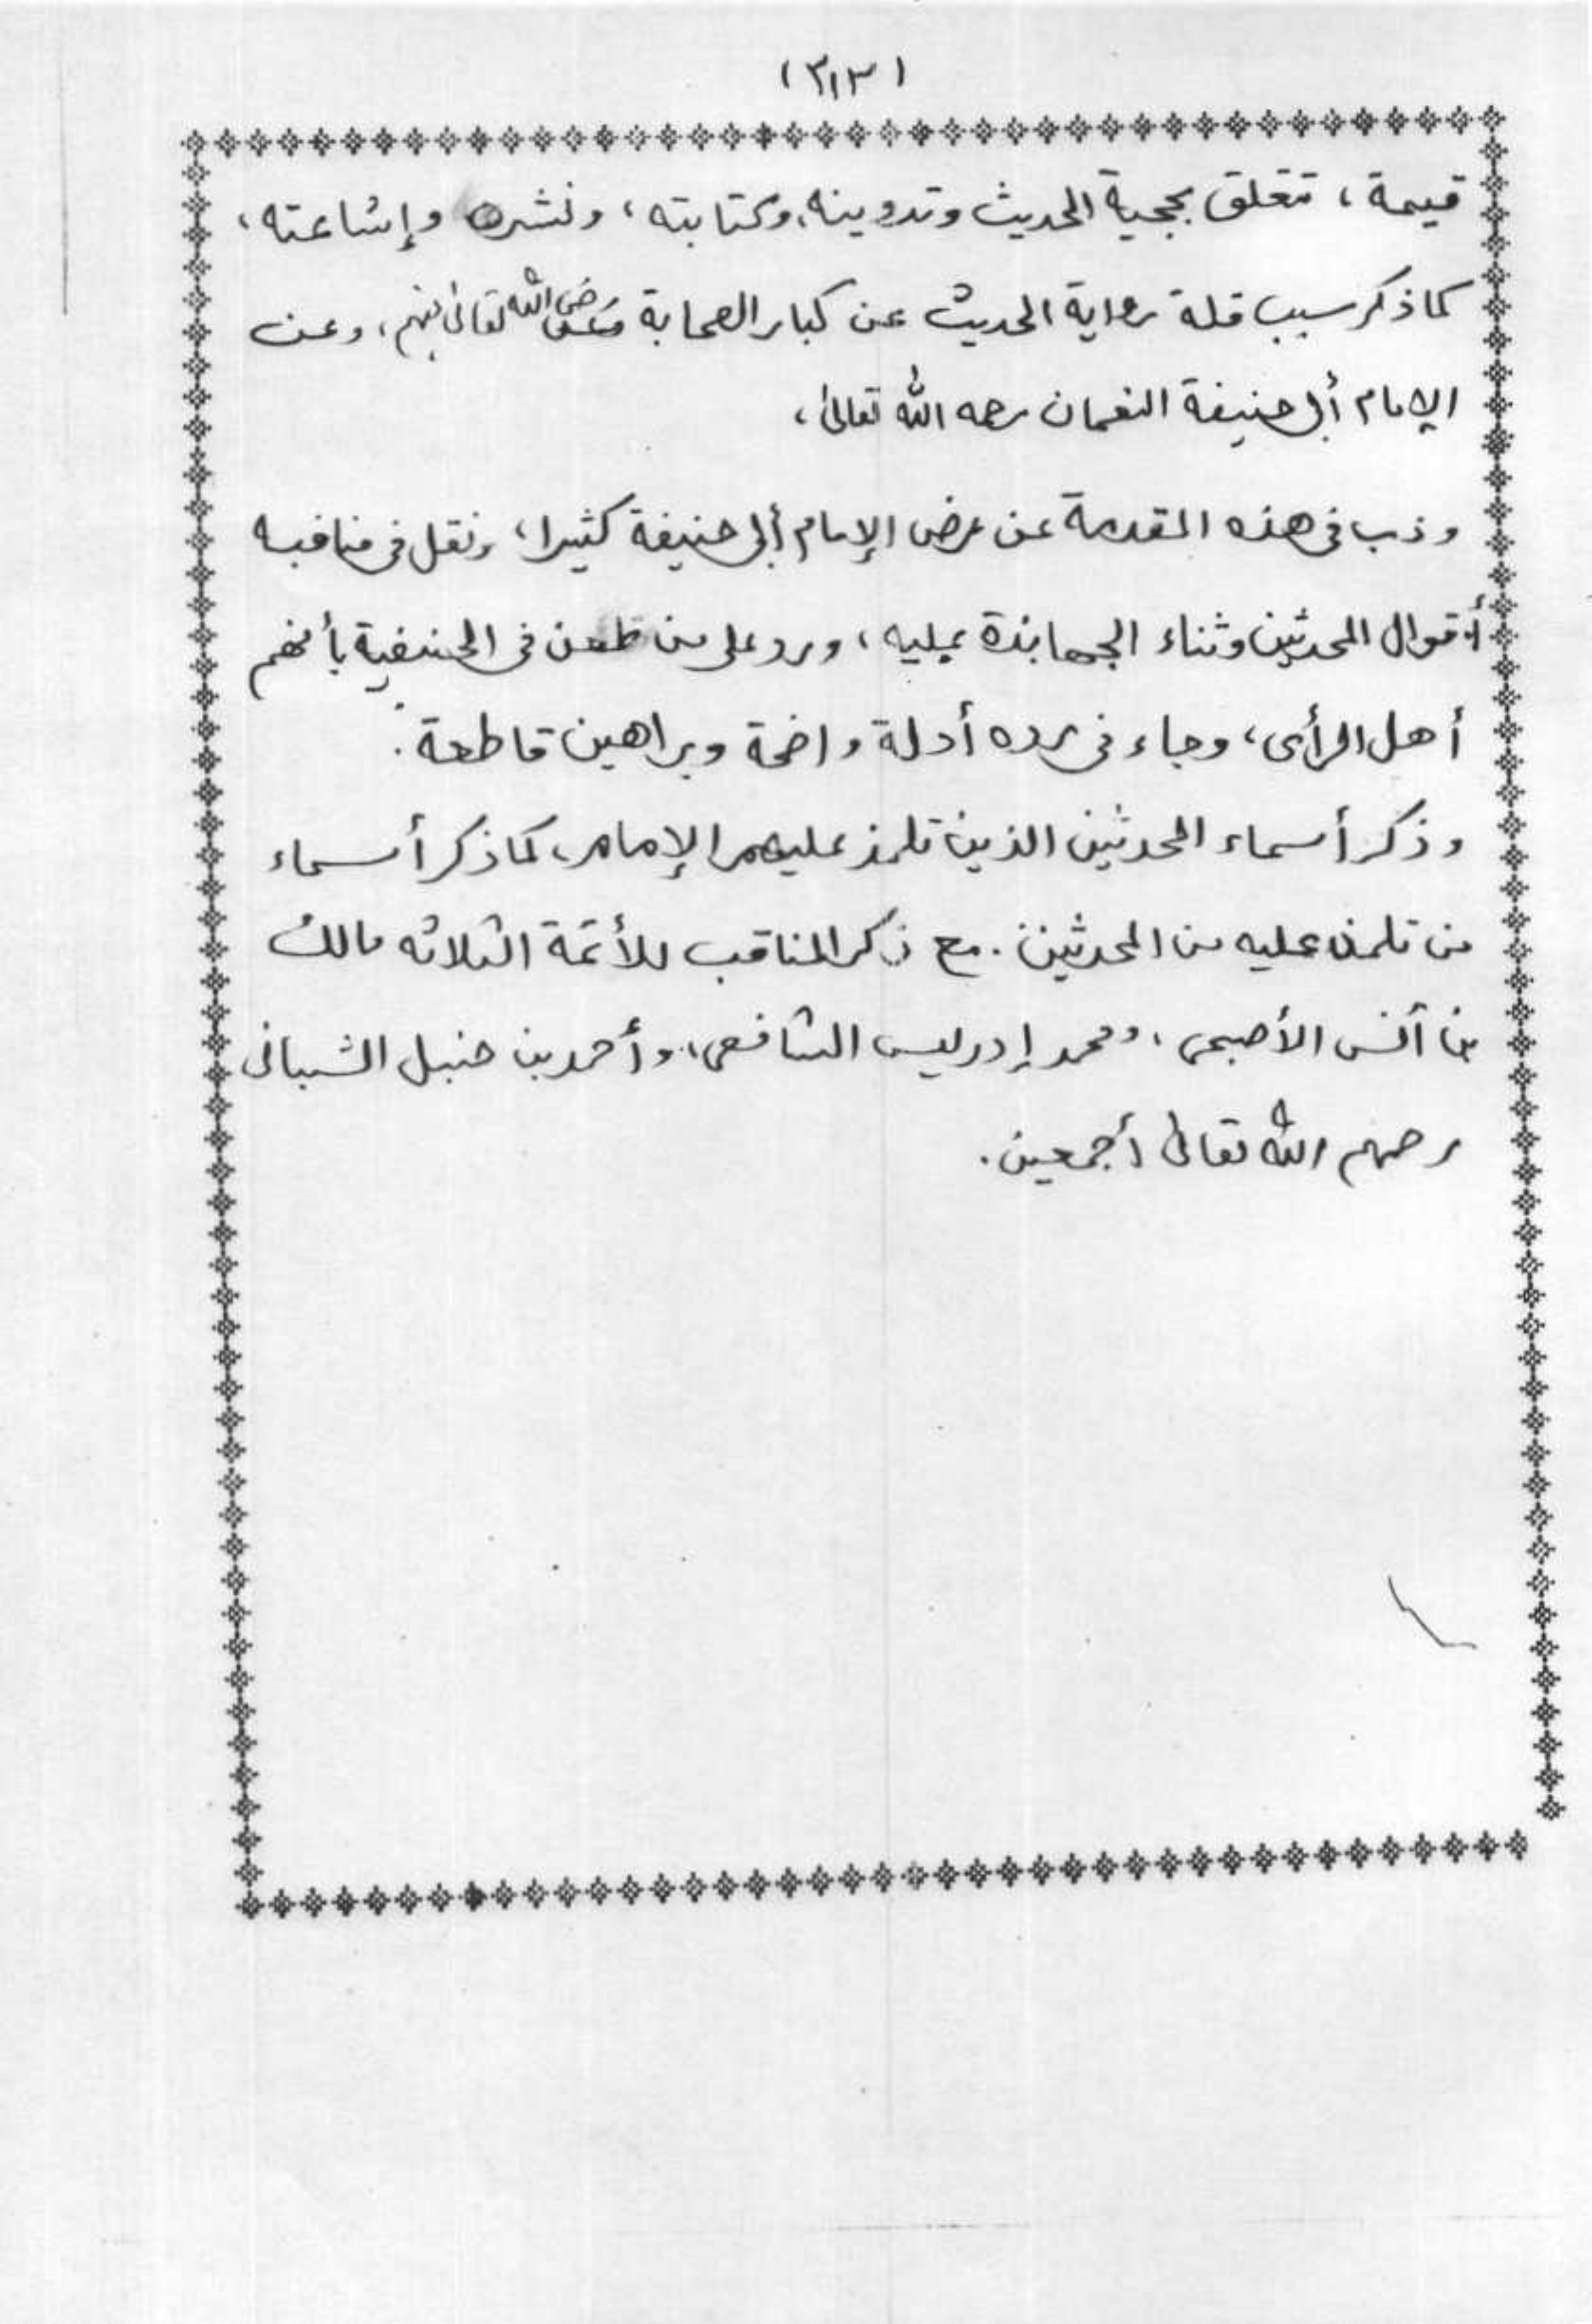 (٣١٣)
قيمة، تتعلق بحجية الحديث وتدوينه، وكتابته، ونشره وإشاعته،
كما ذكر سبب قلة رواية الحديث عن كبار الصحابة رضى الله تعالى عنهم، وعن
الإمام أبى حنيفة النعمان رحمه الله تعالى،
وذب فى هذه المقدمة عن عرض الإمام أبى حنيفة كثيرا، ونقل فى مناقبه
أقوال المحدثين وثناء الجهابذة عليه، ورد على من طعن فى الحنفية بأنهم
أهل الرأى، وجاء فى رده أدلة واضحة وبراهين قاطعة.
وذكر أسماء المحدثين الذين تلمذ عليهم الإمام، كما ذكر أسماء
من تلمذ عليه من المحدثين. مع ذكر المناقب للأئمة الثلاثه مالك
بن أنس الأصبحى، ومحمد إدريس الشافعى، وأحمد بن حنبل الشبانى
رحمهم الله تعالى أجمعين.